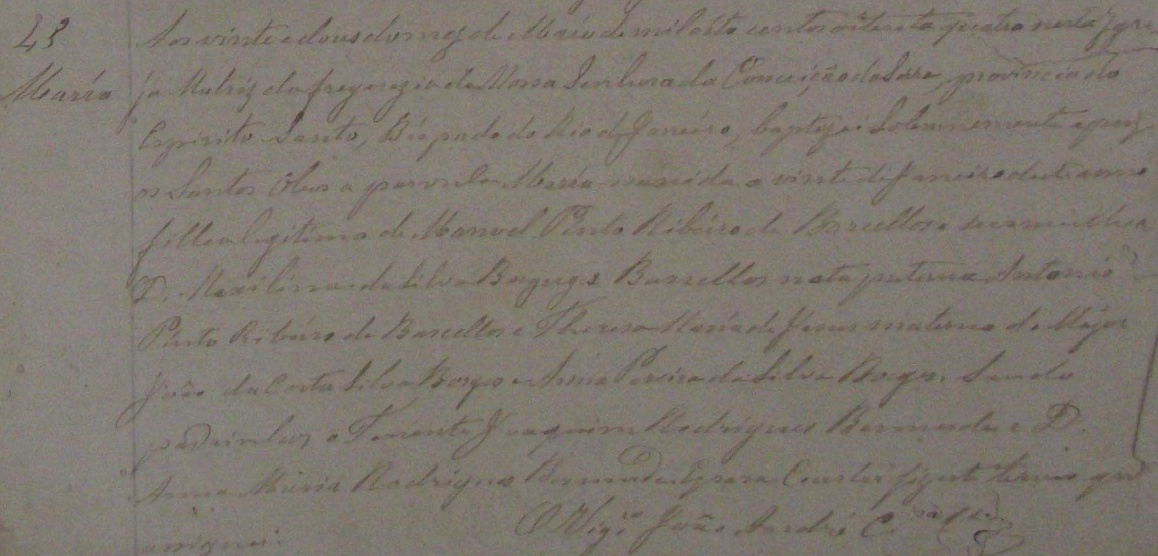 23
Maria
Aos vinte e dous do mez de Março de mil oito centos oitenta quatro nesta Igre
ja Matriz da freguezia de Nossa Senhora da Conceição da Serra, provincia do
Espirito Santo, Bispado do Rio de Janeiro, baptizei Solemnemente e puz
os Santos Oleos a parvula Maria nascida a vinte de Janeiro deste anno
filha legitima de Manoel Pinto Ribeiro de Barcellos e sua mulher
D. da Silva Borges Barcellos neta paterna Antonio
Pinto Ribeiro de Barcellos e Thereza Maria de Jesus materna do Major
João da Costa Silva Borges e Anna Pereira da Silva Borges. Sendo
padrinhos, o Tenente Joaquim Rodrigues Bermudes e D.
Anna Maria Rodrigues Bermudes E para Constar fiz este termo que
assignei.
O Vigrº João André